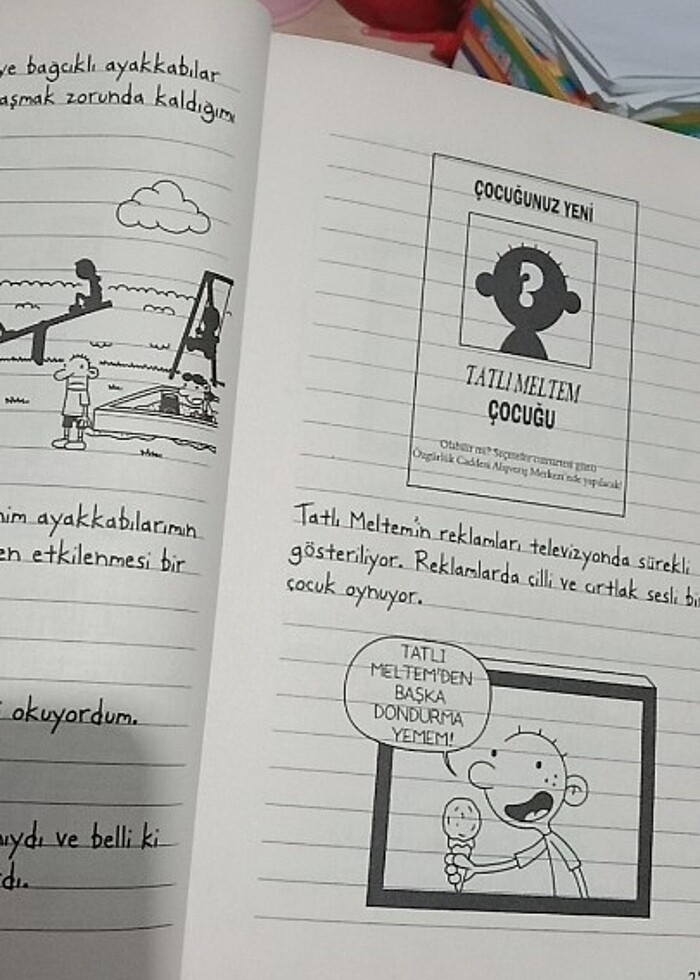 ve bağcıklı ayakkabılar
aşmak zorunda kaldığımı
ayakkabılarımın
en etkilenmesi bir
okuyordum.
ve belli ki
ÇOCUĞUNUZ YENİ
TATLI MELTEM
ÇOCUĞU
Olabilir mi? Seçmeler cumartesi günü
Özgürlük Caddesi Alışveriş Merkezi'nde yapılacak!
Tatlı Meltem'in reklamları televizyonda sürekli
gösteriliyor. Reklamlarda çilli ve cırtlak sesli bi
çocuk oynuyor.
TATLI
MELTEM'DEN
BAŞKA
DONDURMA
YEMEM!